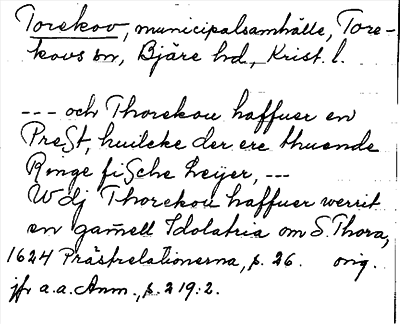 Torekov, municipalsamhälle, Tore-
kovs sn, Bjäre hd, Krist. l.
--- och Thorekou haffuer en
PreSt, huilcke der ere thuende
Ringe fiSche Leijer, ---
Wdj Thorekou haffuer werrit
en gamell Idolatria om S. Thora,
1624 Prästrelationerna, s. 26. orig.
jfr a.a. Anm., s. 219:2.